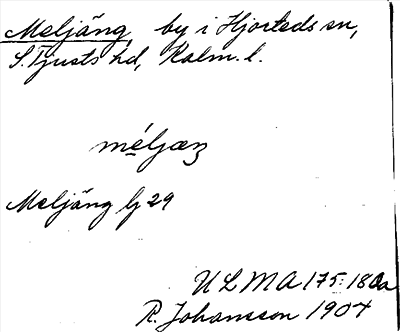 Meljäng, by i Hjorteds sn,
S. Tjusts hd, Kalm. l.
méljæŋ
Meljäng Gj 29
ULMA 175:18 Da
R. Johansson 1904